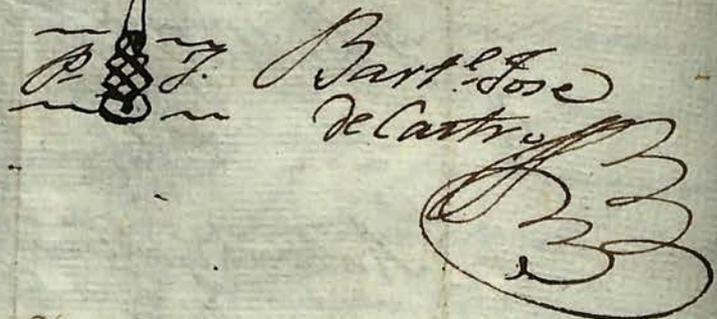 P. J. Bart.e Jose
de Castro